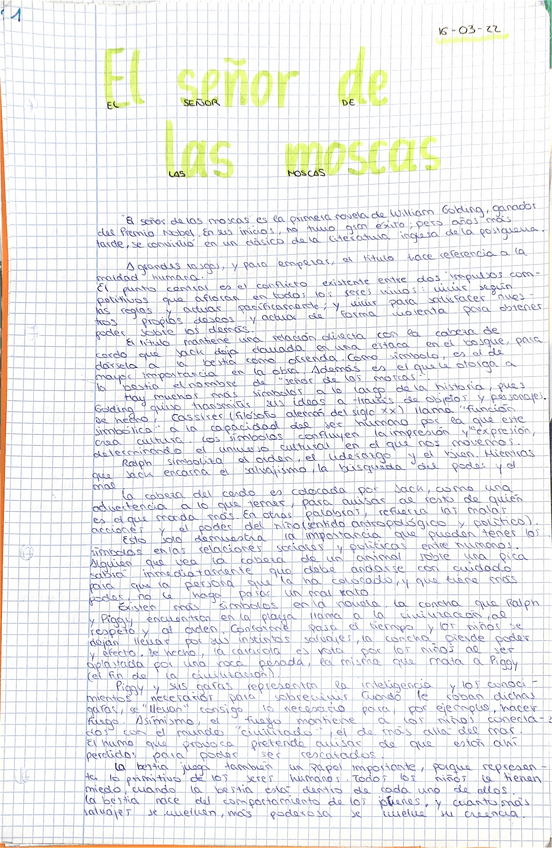 1
16-03-22
El señor de
EL SEÑOR DE
las moscas
LAS MOSCAS
El señor de las moscas es la primera novela de William Golding, ganador
del Premio Nobel. En sus inicios, no tuvo gran éxito, pero años más
tarde, se convirtió en un clásico de la literatura inglesa de la postguerra.
A grandes rasgos, y para empezar, el título hace referencia a la
maldad humana.
El punto central es el conflicto existente entre dos impulsos com-
petitivos que afloran en todos los seres vivos: vivir según
las reglas y actuar pacíficamente, y vivir para satisfacer nues-
tros propios deseos y actuar de forma violenta para obtener
poder sobre los demás.
El título mantiene una relación directa con la cabeza de
cerdo que Jack deja clavada en una estaca en el bosque, para
dársela a la bestia como ofrenda. Como símbolo, es el de
mayor importancia en la obra. Además es el que le otorga a
la bestia el nombre de "señor de las moscas".
Hay muchos más símbolos a lo largo de la historia, pues
Golding quiso transmitir sus ideas a través de objetos y personajes.
De hecho, Cassirer (filósofo alemán del siglo XX) llama "función
simbólica" a la capacidad del ser humano por la que este
crea cultura. Los símbolos confluyen la impresión y expresión,
determinando el universo cultural en el que nos movemos.
Ralph simboliza el orden, el liderazgo y el bien. Mientras
que Jack encarna el salvajismo, la búsqueda del poder y el
mal.
La cabeza del cerdo es colocada por Jack, como una
advertencia a lo que temer, para avisar al resto de quién
es el que manda más. En otras palabras, refuerza las malas
acciones y el poder del niño (sentido antropológico y político).
Esto solo demuestra la importancia que pueden tener los
símbolos en las relaciones sociales y políticas entre humanos.
Alguien que vea la cabeza de un animal sobre una pica
sabrá inmediatamente que debe andarse con cuidado
para que la persona que la ha colocado, y que tiene más
poder, no le haga pasar un mal rato.
Existen más símbolos en la novela. La concha que Ralph
y Piggy encuentran en la playa llama a la civilización, al
respeto y al orden. Conforme pasa el tiempo y los niños se
dejan llevar por instintos salvajes, la concha pierde poder
y efecto. De hecho, la caracola es rota por los niños al ser
aplastada por una roca pesada, la misma que mata a Piggy
(el fin de la civilización).
Piggy y sus gafas representan la inteligencia y los conoci-
mientos necesarios para sobrevivir. Cuando le roban dichas
gafas, se "llevan" consigo lo necesario para, por ejemplo, hacer
fuego. Asimismo, el fuego mantiene a los niños conecta-
dos con el mundo "civilizado", el de más allá del mar.
El humo que provoca pretende avisar de que están ahí
perdidos para poder ser rescatados.
La bestia juega también un papel importante, porque represen-
ta lo primitivo de los seres humanos. Todos los niños le tienen
miedo, cuando la bestia está dentro de cada uno de ellos.
La bestia nace del comportamiento de los jóvenes, y cuanto más
salvajes se vuelven, más poderosa se vuelve su creencia.